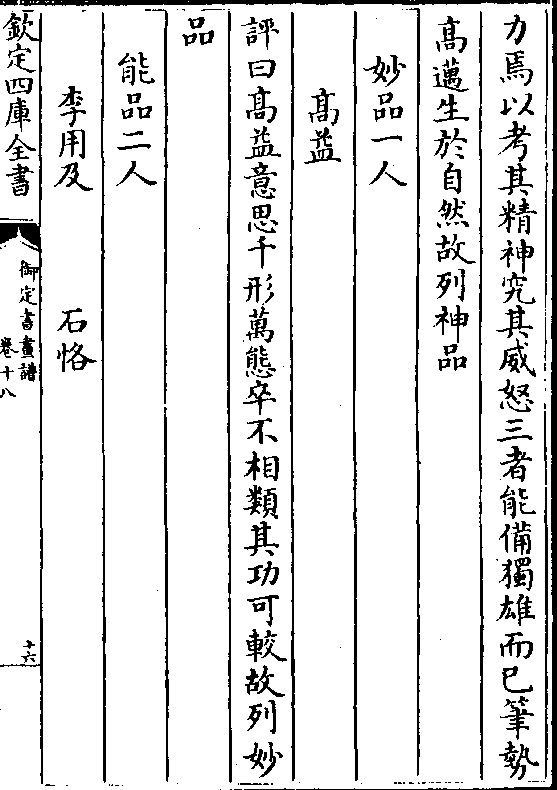 力焉以考其精神究其威怒三者能備獨雄而已筆勢
高邁生於自然故列神品
妙品一人
高益
評曰高益意思千形萬態卒不相類其功可較故列妙
品
能品二人
李用及　石恪
欽定四庫全書
御定書畫譜
卷十八
十六